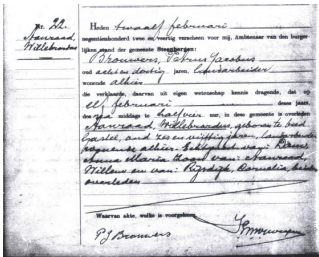 no. 22.
Aanraad,
Willebrordus
Heden twaalf februari
negentienhonderd twee en veertig verscheen voor mij, Ambtenaar van den burger-
lijken stand der gemeente Steenbergen:
Brouwers, Petrus Jacobus
oud acht en dertig jaren, landarbeider
wonende alhier
die verklaarde, daarvan uit eigen wetenschap kennis dragende, dat op
elf februari dezes jaars,
ten na middags te half vier ure, in deze gemeente is overleden
Aanraad, Willebrordus, geboren te Oud
Gastel, oud zes en vijftig jaren, landarbeider
wonende alhier. Echtgenoot van:
Anna Maria. Zoon van: Aanraad,
Willem en van: Rijsdijk, Cornelia, beiden
overleden
Waarvan akte, welke is voorgelezen
P J Brouwers